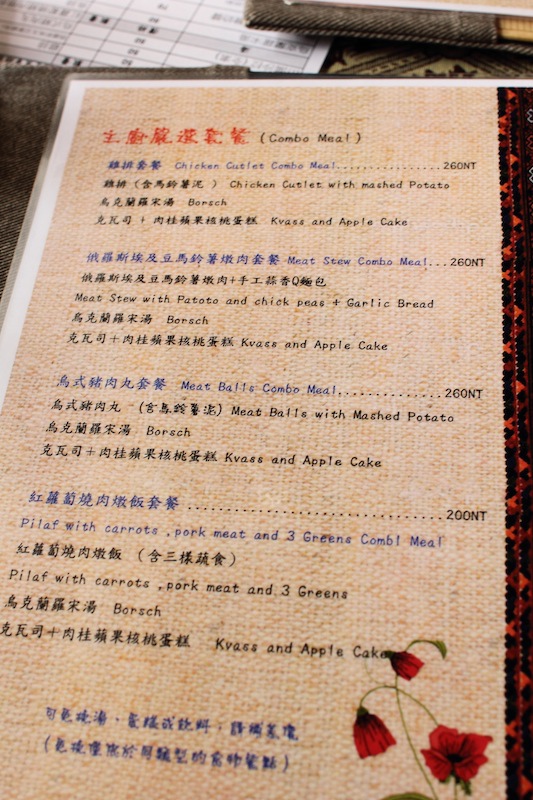 主廚嚴選套餐 (Combo Meal)
雞排套餐 Chicken Cutlet Combo Meal................260NT
雞排 (含馬鈴薯泥 ) Chicken Cutlet with mashed Potato
烏克蘭羅宋湯 Borsch
克瓦司 + 肉桂蘋果核桃蛋糕 Kvass and Apple Cake
俄羅斯埃及豆馬鈴薯燉肉套餐 Meat Stew Combo Meal...260NT
俄羅斯埃及豆馬鈴薯燉肉+手工蒜香Q麵包
Meat Stew with Patoto and chick peas + Garlic Bread
烏克蘭羅宋湯 Borsch
克瓦司+肉桂蘋果核桃蛋糕 Kvass and Apple Cake
烏式豬肉丸套餐 Meat Balls Combo Meal...............260NT
烏式豬肉丸 (含馬鈴薯泥) Meat Balls with Mashed Potato
烏克蘭羅宋湯 Borsch
克瓦司+肉桂蘋果核桃蛋糕 Kvass and Apple Cake
紅蘿蔔燒肉燉飯套餐 ..............................200NT
Pilaf with carrots ,pork meat and 3 Greens Combl Meal
紅蘿蔔燒肉燉飯 (含三樣蔬食)
Pilaf with carrots ,pork meat and 3 Greens
烏克蘭羅宋湯 Borsch
克瓦司+肉桂蘋果核桃蛋糕 Kvass and Apple Cake
可更換湯、蛋糕或飲料,請補差價